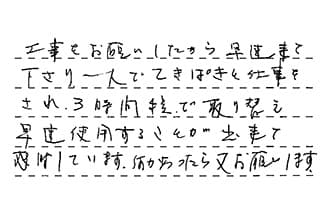 工事をお願いしたから早速来て
下さり一人でてきぱきと仕事を
され、3時間程で取り替え
早速使用することが出来て
感謝しています。何かあったら又お願いします。